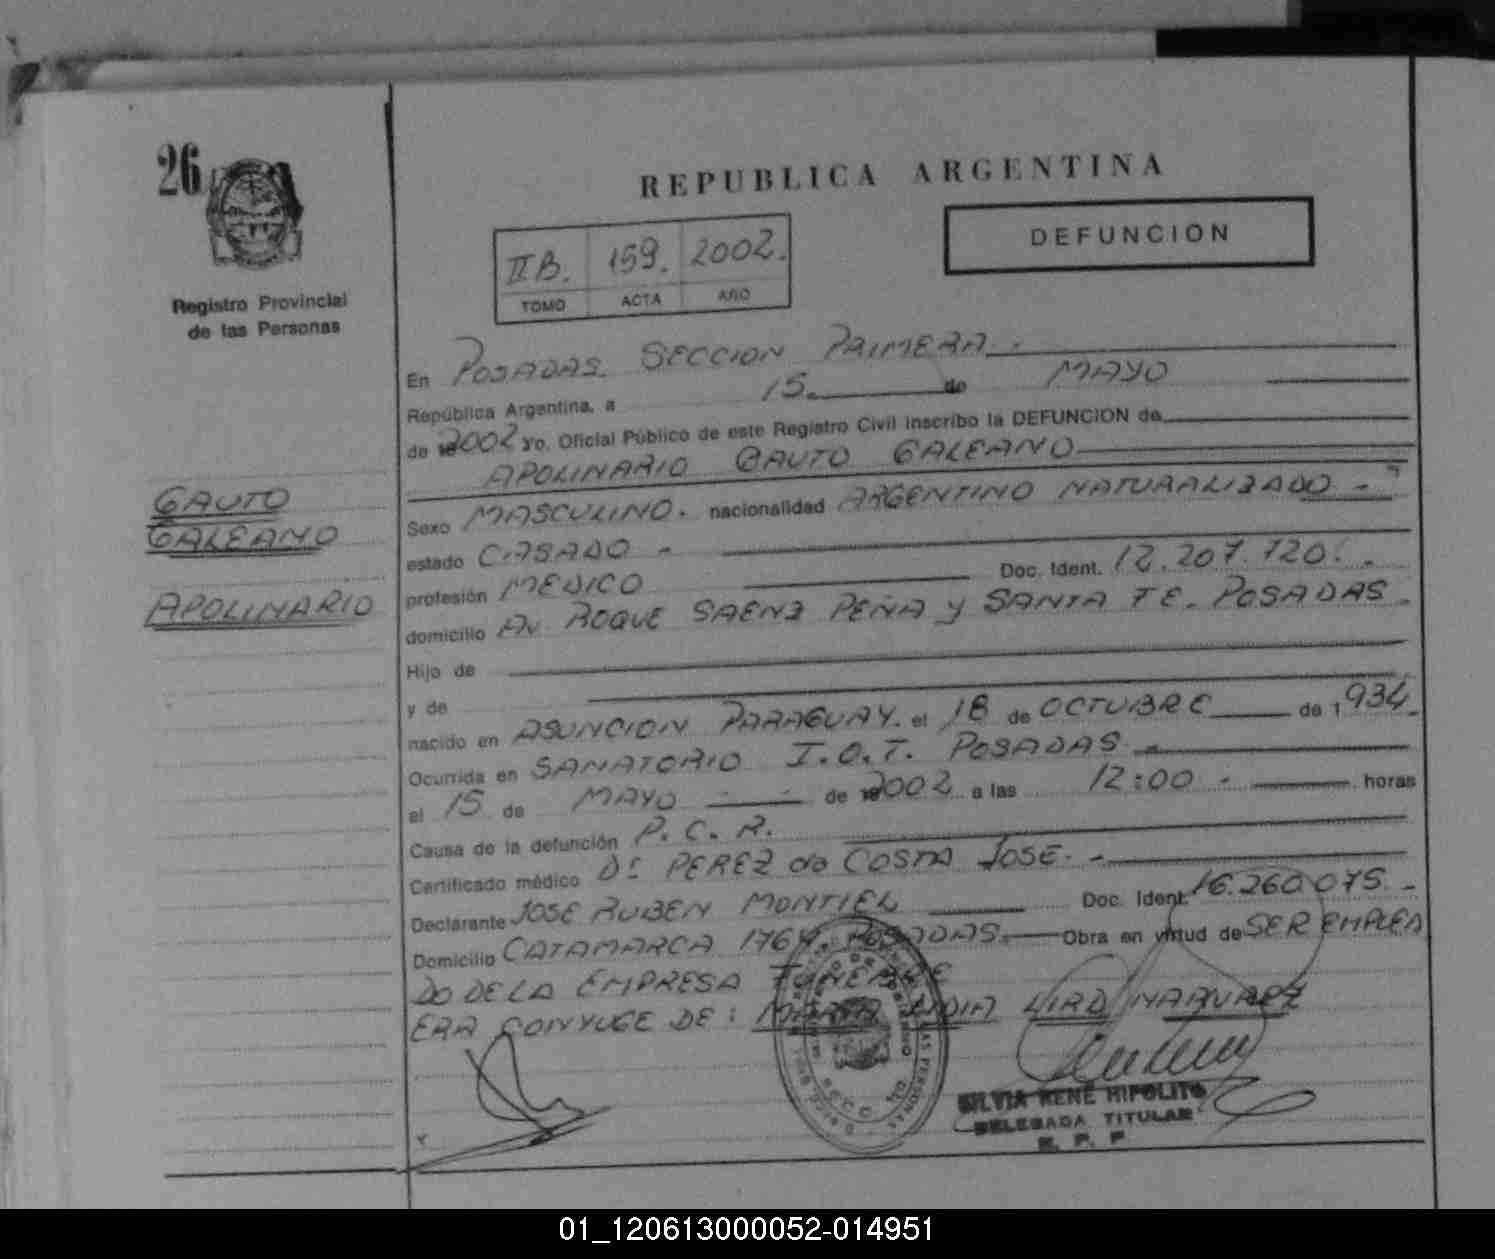 26
Registro Provincial
de las Personas
REPUBLICA ARGENTINA
DEFUNCION
II B. 159. 2002.
TOMO ACTA AÑO
En POSADAS. SECCION PRIMERA.
República Argentina, a 15. de MAYO
de 2002 yo. Oficial Público de este Registro Civil inscribo la DEFUNCION de
APOLINARIO GAUTO GALEANO
GAUTO
GALEANO
APOLINARIO
Sexo MASCULINO. nacionalidad ARGENTINO NATURALIZADO.-
estado CASADO -
profesión MEDICO Doc. Ident. 12.207.120.-
domicilio Av. ROQUE SAENZ PEÑA y SANTA FE. POSADAS.
Hijo de
y de
nacido en ASUNCION PARAGUAY. el 18 de OCTUBRE de 1934.
Ocurrida en SANATORIO I.O.T. POSADAS.-
el 15 de MAYO de 2002 a las 12:00.- horas
Causa de la defunción P.C.R.
Certificado médico Dr PEREZ da COSTA JOSE.-
Declarante JOSE RUBEN MONTIEL Doc. Ident. 16.260.075.-
Domicilio CATAMARCA 1764. POSADAS. Obra en virtud de SER EMPLEA
DO DE LA EMPRESA FUNEBRE
ERA CONYUGE DE: LIDIA NARVAEZ
SILVIA RENE HIPOLITO
DELEGADA TITULAR
R. P. P.
01_120613000052-014951